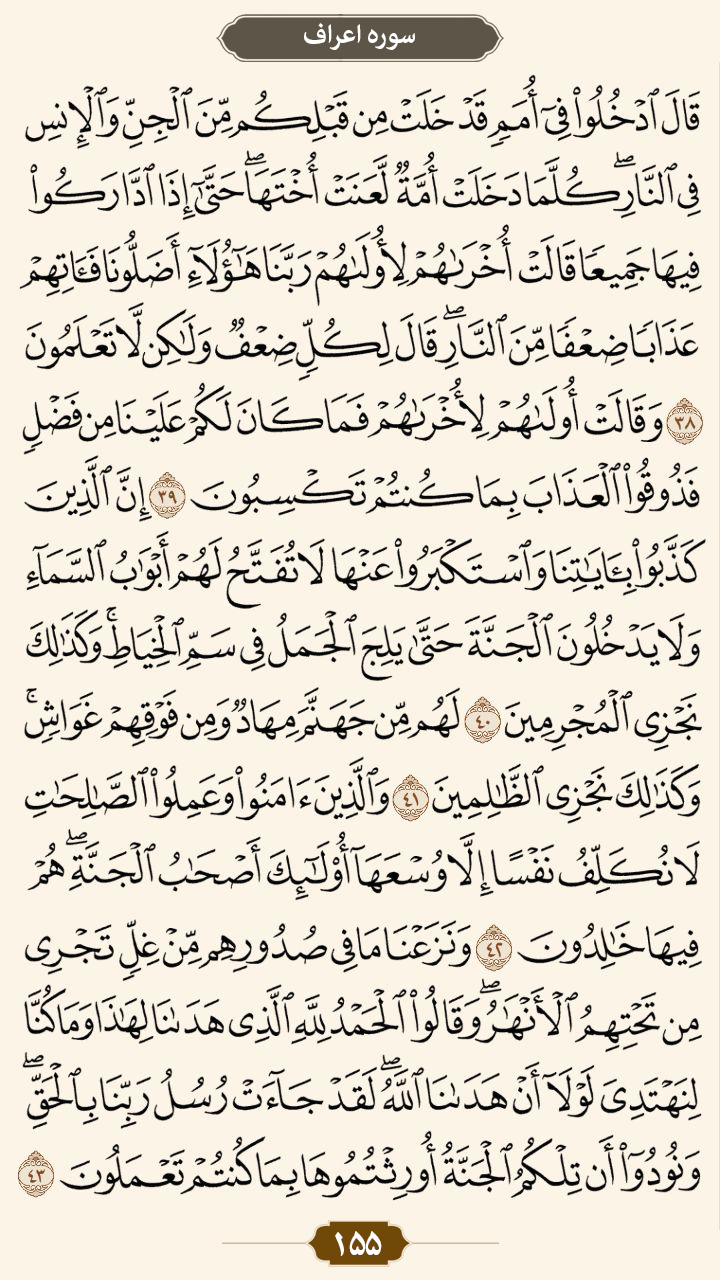 سوره اعراف
قَالَ ٱدۡخُلُواْ فِيٓ أُمَمٖ قَدۡ خَلَتۡ مِن قَبۡلِكُم مِّنَ ٱلۡجِنِّ وَٱلۡإِنسِ
فِي ٱلنَّارِۖ كُلَّمَا دَخَلَتۡ أُمَّةٞ لَّعَنَتۡ أُخۡتَهَاۖ حَتَّىٰٓ إِذَا ٱدَّارَكُواْ
فِيهَا جَمِيعٗا قَالَتۡ أُخۡرَىٰهُمۡ لِأُولَىٰهُمۡ رَبَّنَا هَٰٓؤُلَآءِ أَضَلُّونَا فَـَٔاتِهِمۡ
عَذَابٗا ضِعۡفٗا مِّنَ ٱلنَّارِۖ قَالَ لِكُلّٖ ضِعۡفٞ وَلَٰكِن لَّا تَعۡلَمُونَ
٣٨ وَقَالَتۡ أُولَىٰهُمۡ لِأُخۡرَىٰهُمۡ فَمَا كَانَ لَكُمۡ عَلَيۡنَا مِن فَضۡلٖ
فَذُوقُواْ ٱلۡعَذَابَ بِمَا كُنتُمۡ تَكۡسِبُونَ ٣٩ إِنَّ ٱلَّذِينَ
كَذَّبُواْ بِـَٔايَٰتِنَا وَٱسۡتَكۡبَرُواْ عَنۡهَا لَا تُفَتَّحُ لَهُمۡ أَبۡوَٰبُ ٱلسَّمَآءِ
وَلَا يَدۡخُلُونَ ٱلۡجَنَّةَ حَتَّىٰ يَلِجَ ٱلۡجَمَلُ فِي سَمِّ ٱلۡخِيَاطِۚ وَكَذَٰلِكَ
نَجۡزِي ٱلۡمُجۡرِمِينَ ٤٠ لَهُم مِّن جَهَنَّمَ مِهَادٞ وَمِن فَوۡقِهِمۡ غَوَاشٖۚ
وَكَذَٰلِكَ نَجۡزِي ٱلظَّٰلِمِينَ ٤١ وَٱلَّذِينَ ءَامَنُواْ وَعَمِلُواْ ٱلصَّٰلِحَٰتِ
لَا نُكَلِّفُ نَفۡسًا إِلَّا وُسۡعَهَآ أُوْلَٰٓئِكَ أَصۡحَٰبُ ٱلۡجَنَّةِۖ هُمۡ
فِيهَا خَٰلِدُونَ ٤٢ وَنَزَعۡنَا مَا فِي صُدُورِهِم مِّنۡ غِلّٖ تَجۡرِي
مِن تَحۡتِهِمُ ٱلۡأَنۡهَٰرُۖ وَقَالُواْ ٱلۡحَمۡدُ لِلَّهِ ٱلَّذِي هَدَىٰنَا لِهَٰذَا وَمَا كُنَّا
لِنَهۡتَدِيَ لَوۡلَآ أَنۡ هَدَىٰنَا ٱللَّهُۖ لَقَدۡ جَآءَتۡ رُسُلُ رَبِّنَا بِٱلۡحَقِّۖ
وَنُودُوٓاْ أَن تِلۡكُمُ ٱلۡجَنَّةُ أُورِثۡتُمُوهَا بِمَا كُنتُمۡ تَعۡمَلُونَ ٤٣
۱۵۵